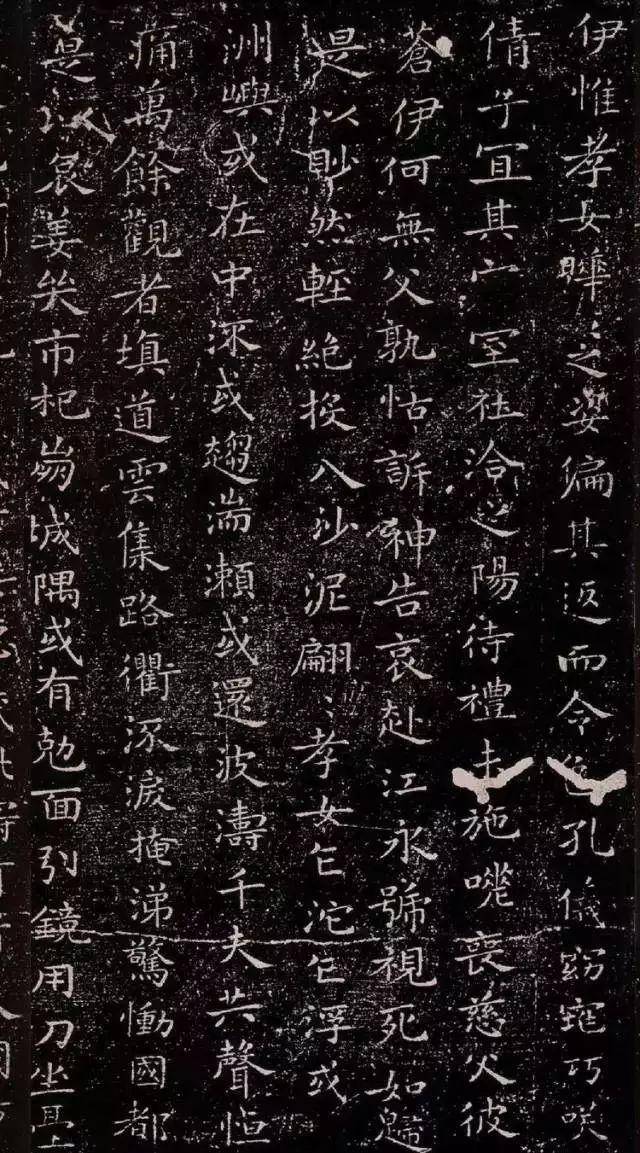 伊惟孝女曄〻之姿偏其返而令色孔儀窈窕巧咲
倩兮宜其家室在洽之陽待禮未施嗟喪慈父彼
蒼伊何無父孰怙訴神告哀赴江永號視死如歸
是以眇然輕絕投入沙泥翩〻孝女乍沉乍浮或
洲嶼或在中流或趨湍瀬或還波濤千夫失聲悼
痛萬餘觀者填道雲集路衢流淚掩涕驚慟國都
是以哀姜哭市杞崩城隅或有勊面引鏡用刀坐臺